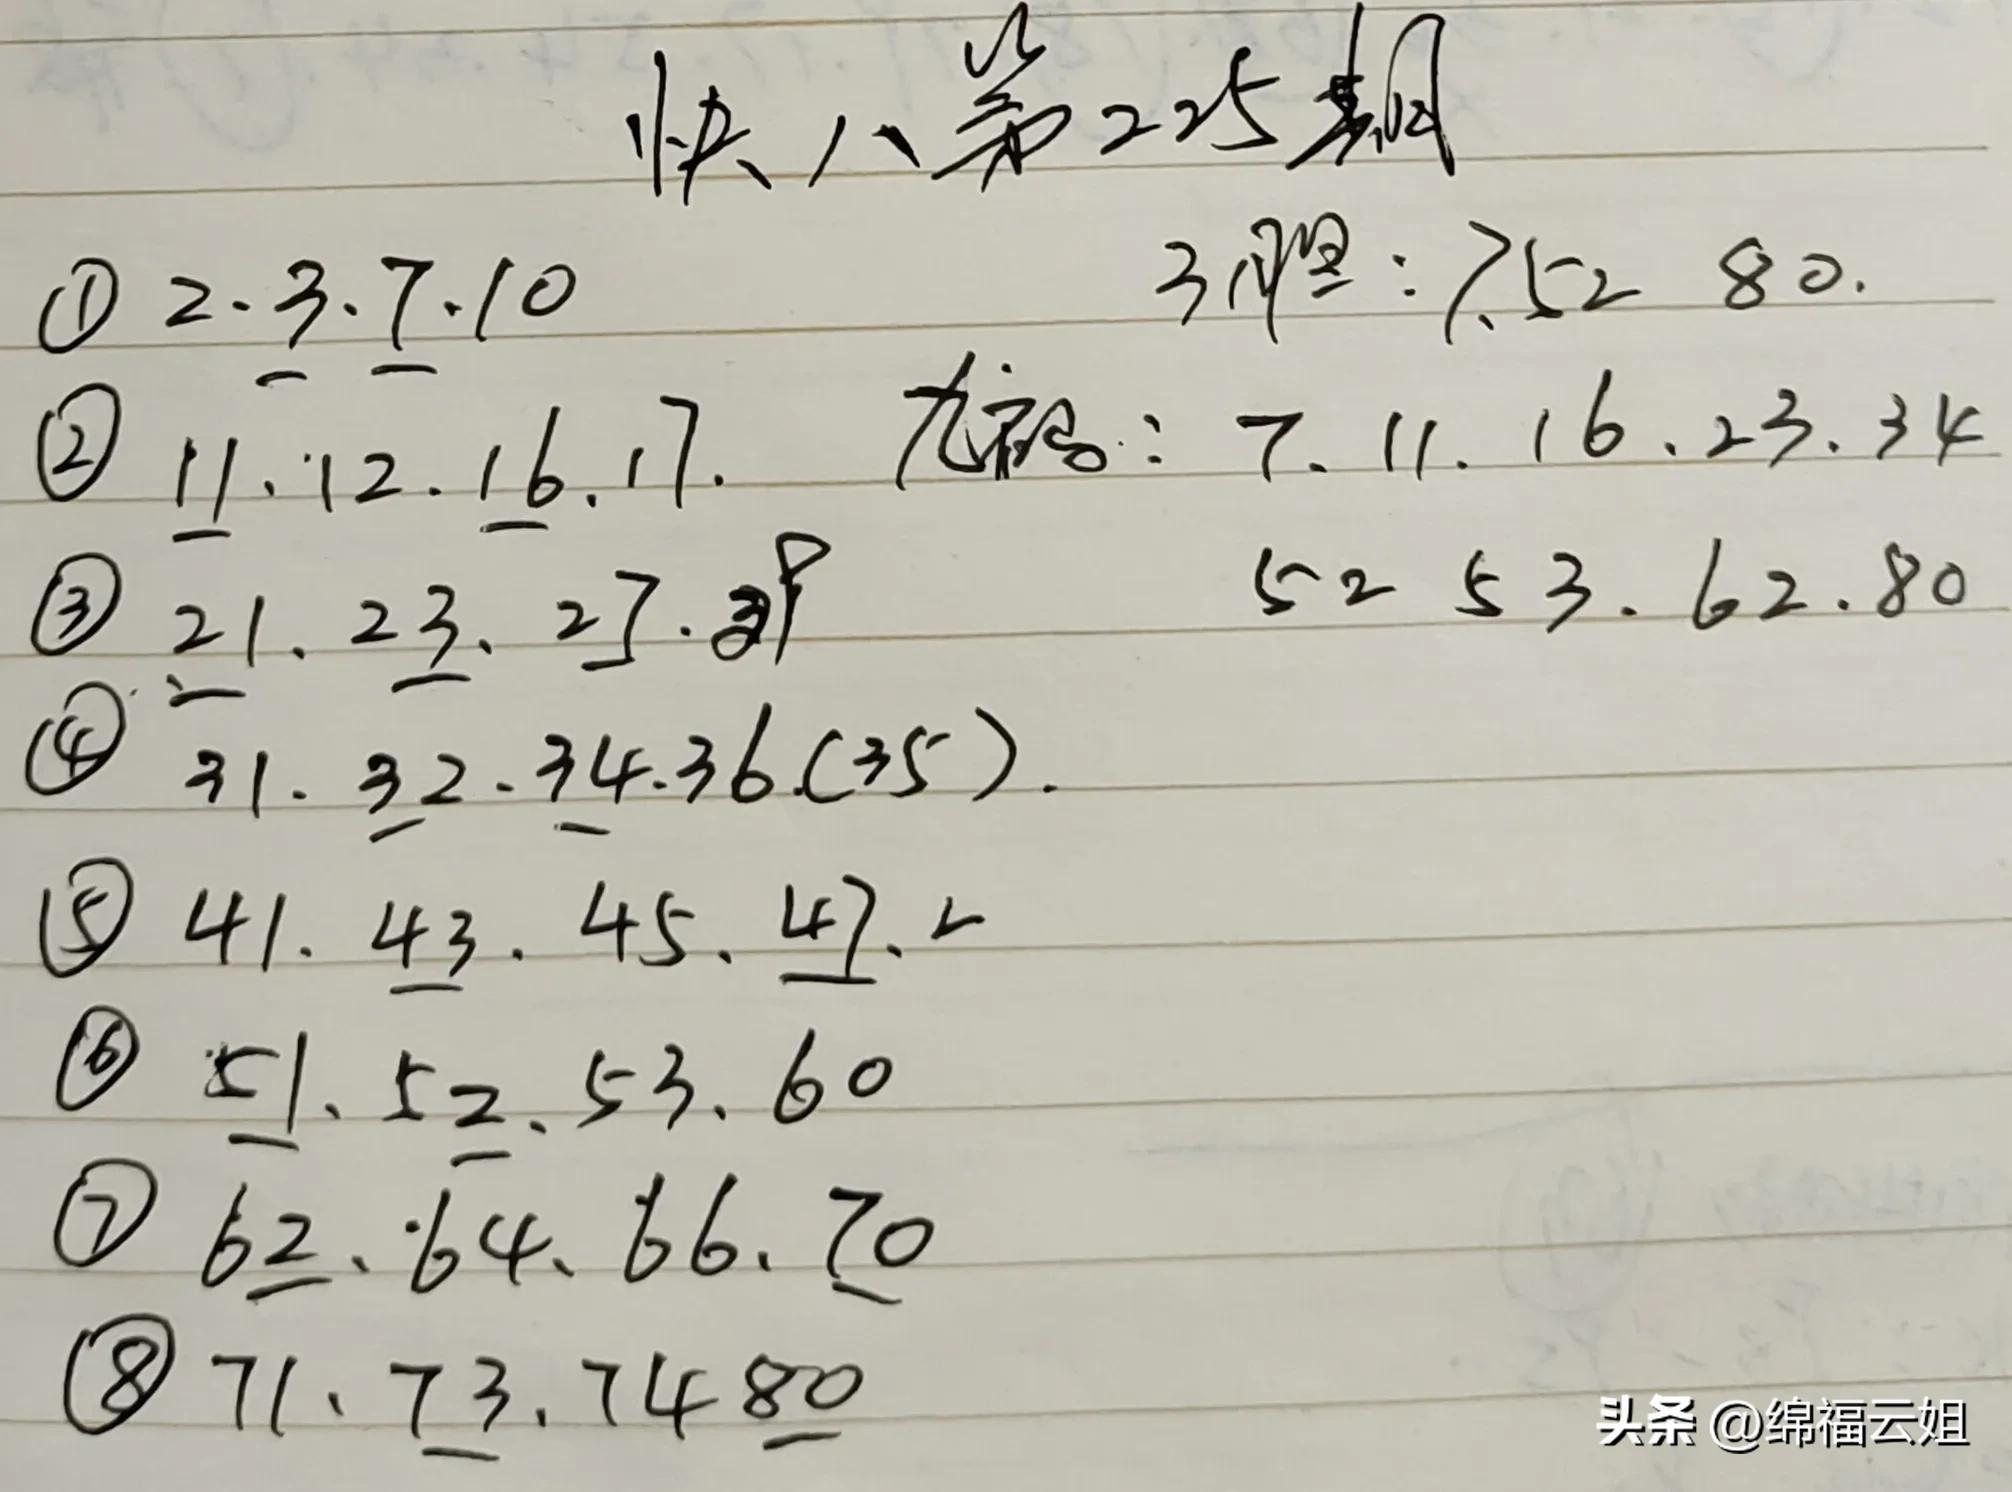 快八第225期
① 2.3.7.10
3胆:7.52 80.
② 11.12.16.17.
九码:7.11.16.23.34
52 53.62.80
③ 21.23.27.
④ 31.32.34.36.(35).
⑤ 41.43.45.47.
⑥ 51.52.53.60
⑦ 62.64.66.70
⑧ 71.73.74 80
头条 @绵福云姐